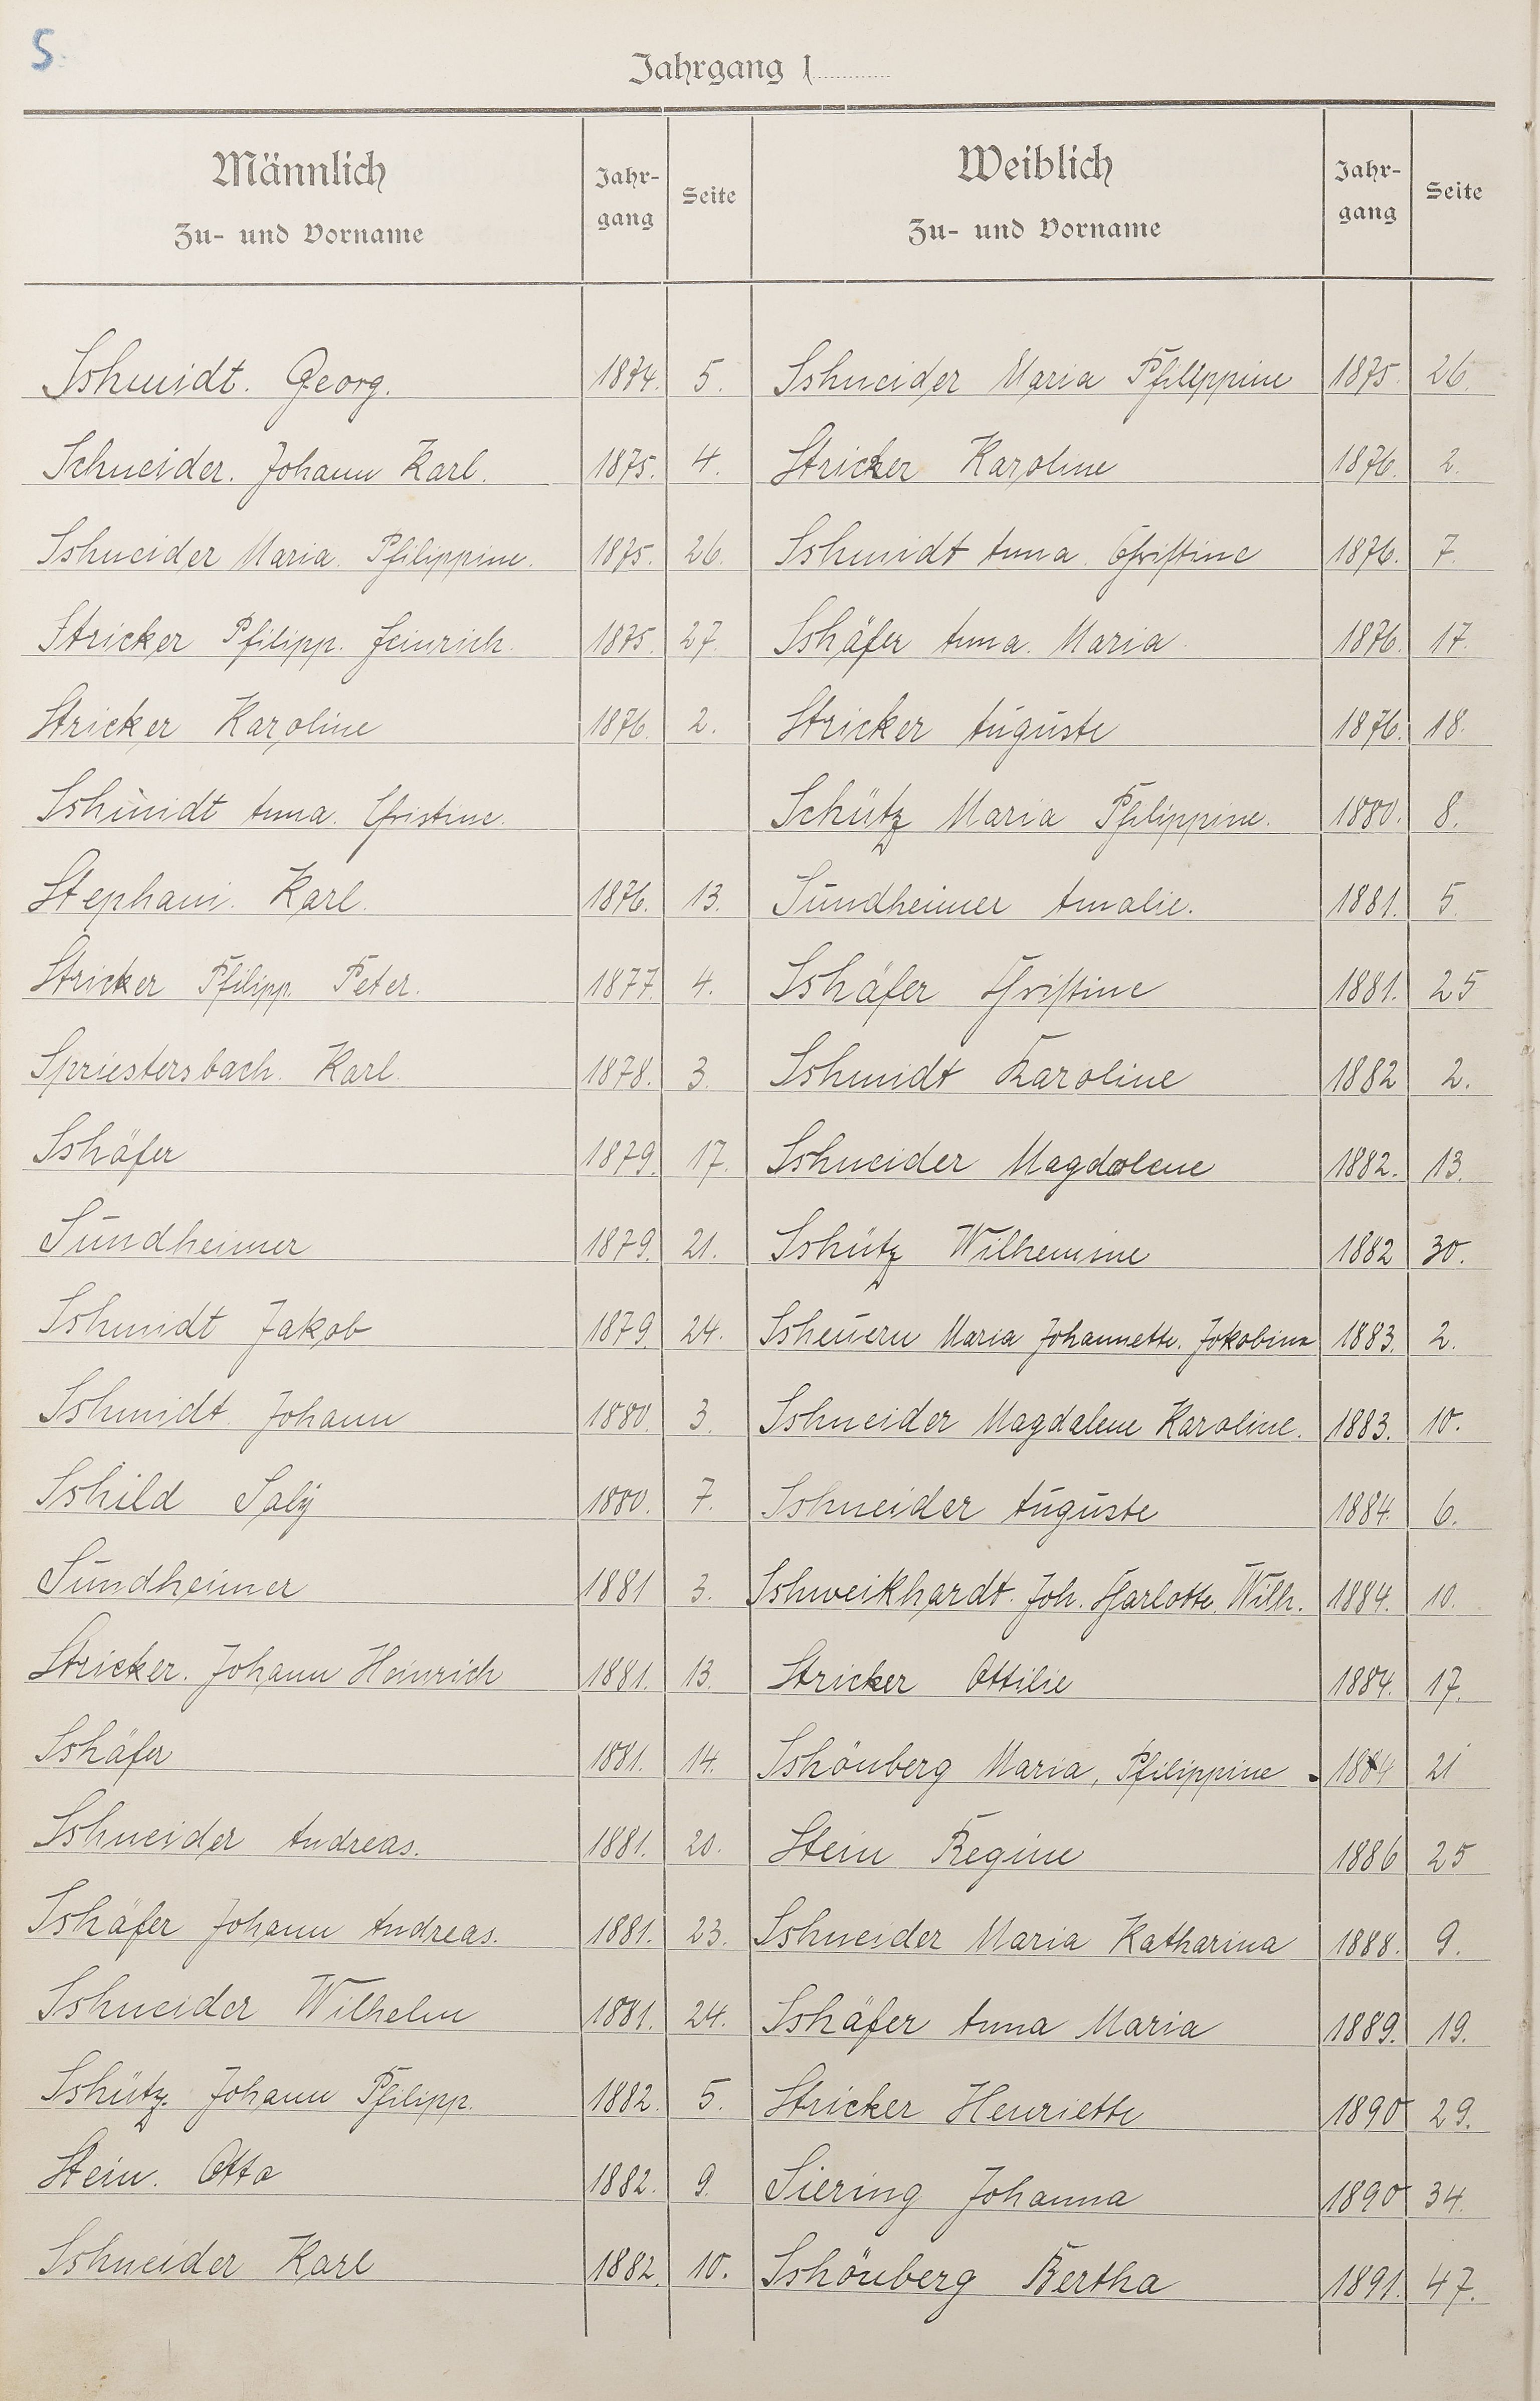 S.
Jahrgang 1
Männlich
Zu- und Vorname
Jahr-
gang
Seite
Weiblich
Zu- und Vorname
Jahr-
gang
Seite
Schmidt. Georg. 1874. 5. Schneider Maria Philippine 1875. 26.
Schneider. Johann Karl. 1875. 4. Stricker Karoline 1876. 2.
Schneider Maria. Philippine. 1875. 26. Schmidt Anna. Christine 1876. 7.
Stricker Philipp. Heinrich. 1875. 27. Schäfer Anna. Maria. 1876. 17.
Stricker Karoline 1876. 2. Stricker Auguste 1876. 18.
Schmidt Anna. Christine. Schütz Maria Philippine. 1880. 8.
Stephani. Karl. 1876. 13. Sundheimer Amalie. 1881. 5.
Stricker Philipp. Peter. 1877. 4. Schäfer Christine 1881. 25
Spriestersbach. Karl. 1878. 3. Schmidt Karoline 1882 2.
Schäfer 1879. 17. Schneider Magdalene 1882. 13.
Sundheimer 1879. 21. Schütz Wilhemine 1882 30.
Schmidt Jakob 1879. 24. Scheuern Maria Johannette. Jakobina 1883. 2.
Schmidt. Johann 1880. 3. Schneider Magdalene Karoline. 1883. 10.
Schild Saly 1880. 7. Schneider Auguste 1884. 6.
Sundheimer 1881 3. Schweikhardt. Joh. Charlotte. Wilh. 1884. 10.
Stricker. Johann Heinrich 1881. 13. Stricker Ottilie 1884. 17.
Schäfer 1881. 14. Schönberg Maria, Philippine 1884 21
Schneider Andreas. 1881. 20. Stein Regine 1886 25
Schäfer Johann Andreas. 1881. 23. Schneider Maria Katharina 1888. 9.
Schneider Wilhelm 1881. 24. Schäfer Anna Maria 1889. 19.
Schütz. Johann Philipp. 1882. 5. Stricker Henriette 1890 29.
Stein. Otto 1882. 9. Siering Johanna 1890 34.
Schneider Karl 1882. 10. Schönberg Bertha 1891. 47.